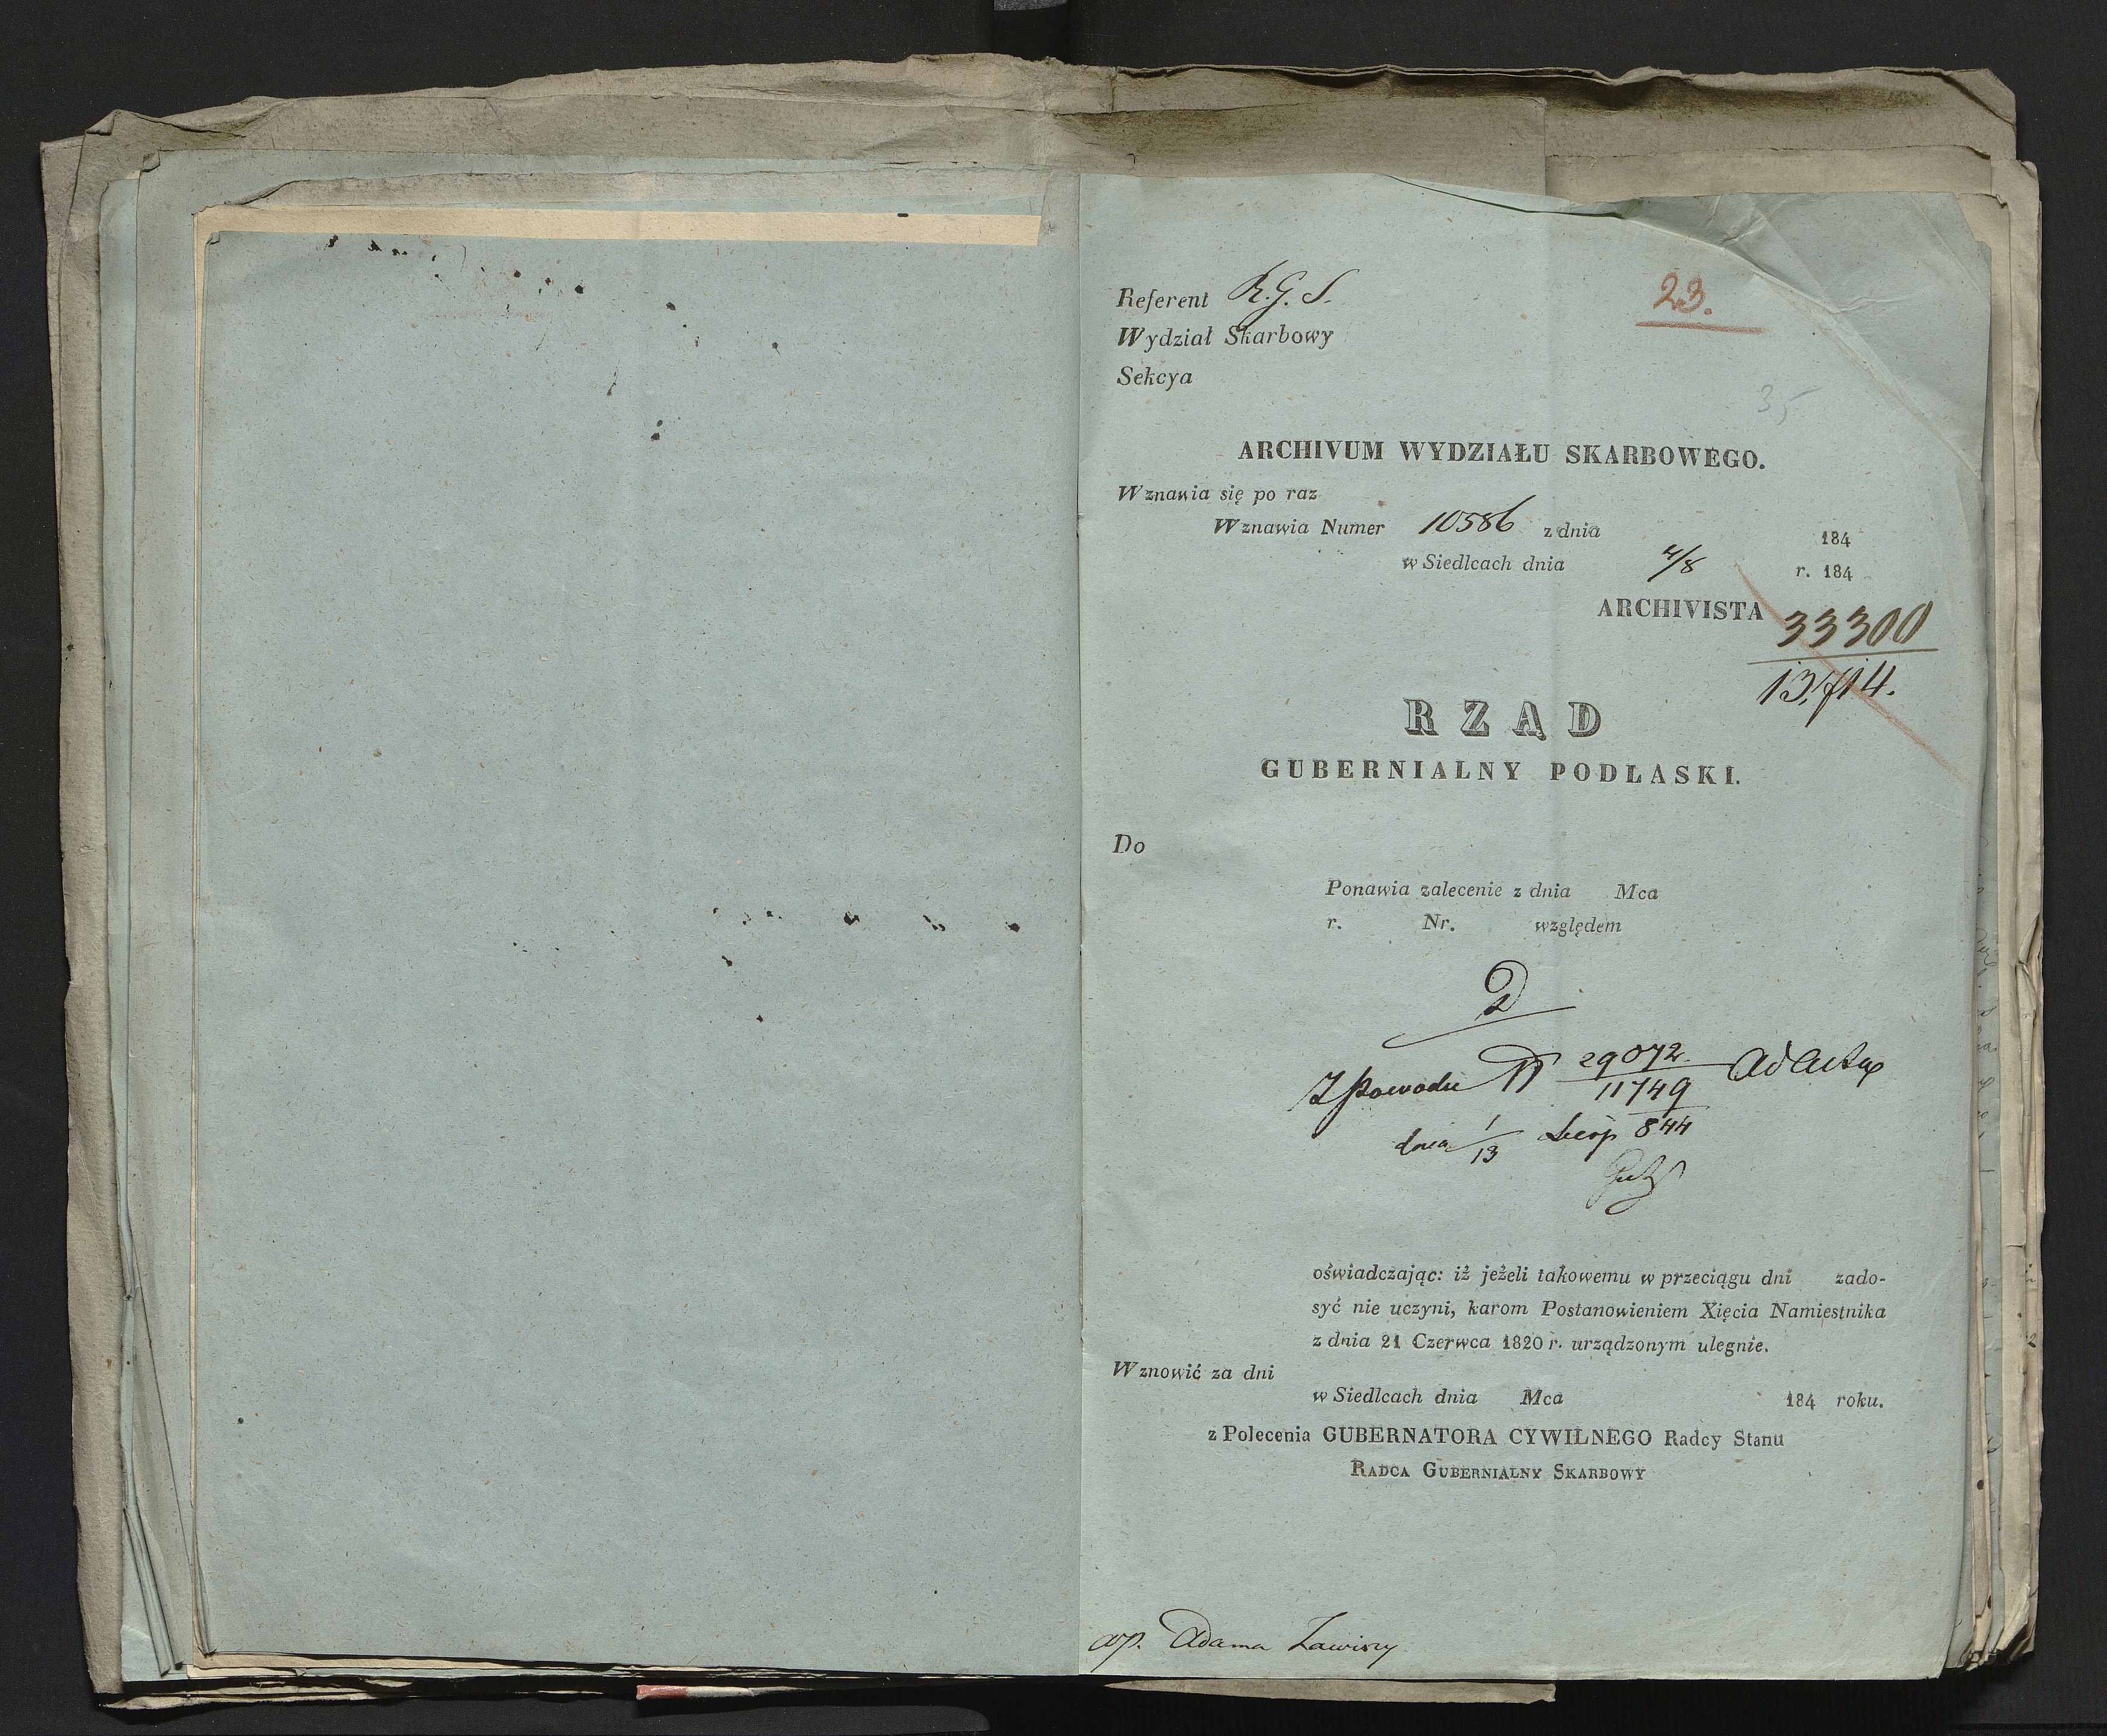 Referent R. G. S.
23.
Wydział Skarbowy
Sekcya
35
ARCHIVUM WYDZIAŁU SKARBOWEGO.
Wznawia się po raz
Wznawia Numer 10586 z dnia 184
w Siedlcach dnia 4/8 r. 184
ARCHIVISTA
33300
13,714.
RZĄD
GUBERNIALNY PODLASKI.
Do
Ponawia zalecenie z dnia Mca
r. Nr. względem
Z powodu N 29072 ad acta
11749
dnia 1/13 Sierp 844
oświadczając: iż jeżeli takowemu w przeciągu dni zado-
syć nie uczyni, karom Postanowieniem Xięcia Namiestnika
z dnia 21 Czerwca 1820 r. urządzonym ulegnie.
Wznowić za dni
w Siedlcach dnia Mca 184 roku.
z Polecenia GUBERNATORA CYWILNEGO Radcy Stanu
RADCA GUBERNIALNY SKARBOWY
Adama Zawiszy